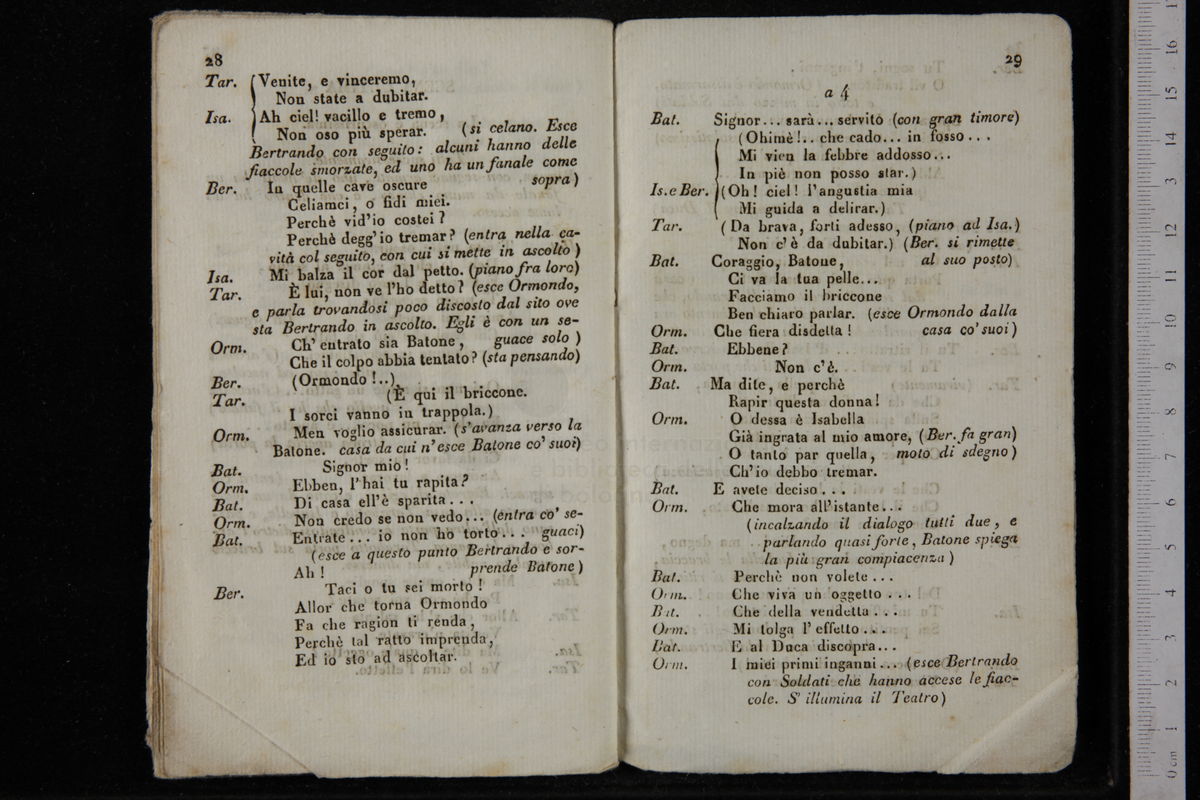 28
Tar. (Venite, e vinceremo,
Non state a dubitar.
Isa. Ah ciel! vacillo e tremo,
Non oso più sperar. (si celano. Esce
Bertrando con seguito: alcuni hanno delle
fiaccole smorzate, ed uno ha un fanale come
Ber. In quelle cave oscure sopra)
Celiamci, o fidi miei.
Perchè vid'io costei?
Perchè degg'io tremar? (entra nella ca-
vità col seguito, con cui si mette in ascolto)
Isa. Mi balza il cor dal petto. (piano fra loro)
Tar. È lui, non ve l'ho detto? (esce Ormondo,
e parla trovandosi poco discosto dal sito ove
sta Bertrando in ascolto. Egli è con un se-
Orm. Ch' entrato sia Batone, guace solo)
Che il colpo abbia tentato? (sta pensando)
Ber. (Ormondo!..)
Tar. (È qui il briccone.
I sorci vanno in trappola.)
Orm. Men voglio assicurar. (s'avanza verso la
Batone. casa da cui n'esce Batone co' suoi)
Bat. Signor mio!
Orm. Ebben, l'hai tu rapita?
Bat. Di casa ell'è sparita...
Orm. Non credo se non vedo... (entra co' se-
Bat. Entrate... io non ho torto... guaci)
(esce a questo punto Bertrando e sor-
Ah! prende Batone)
Ber. Taci o tu sei morto!
Allor che torna Ormondo
Fa che ragion ti renda,
Perchè tal ratto imprenda,
Ed io sto ad ascoltar.
29
a 4
Bat. Signor... sarà... servito (con gran timore)
(Ohimè!.. che cado... in fosso...
Mi vien la febbre addosso...
In piè non posso star.)
Is.e Ber. (Oh! ciel! l'angustia mia
Mi guida a delirar.)
Tar. (Da brava, forti adesso, (piano ad Isa.)
Non c'è da dubitar.) (Ber. si rimette
Bat. Coraggio, Batone, al suo posto)
Ci va la tua pelle...
Facciamo il briccone
Ben chiaro parlar. (esce Ormondo dalla
Orm. Che fiera disdetta! casa co' suoi)
Bat. Ebbene?
Orm. Non c'è.
Bat. Ma dite, e perchè
Rapir questa donna!
Orm. O dessa è Isabella
Già ingrata al mio amore, (Ber. fa gran)
O tanto par quella, moto di sdegno)
Ch'io debbo tremar.
Bat. E avete deciso...
Orm. Che mora all'istante...
(incalzando il dialogo tutti due, e
parlando quasi forte, Batone spiega
la più gran compiacenza)
Bat. Perchè non volete...
Orm. Che viva un oggetto...
Bat. Che della vendetta...
Orm. Mi tolga l'effetto...
Bat. E al Duca discopra...
Orm. I miei primi inganni... (esce Bertrando
con Soldati che hanno accese le fiac-
cole. S' illumina il Teatro)